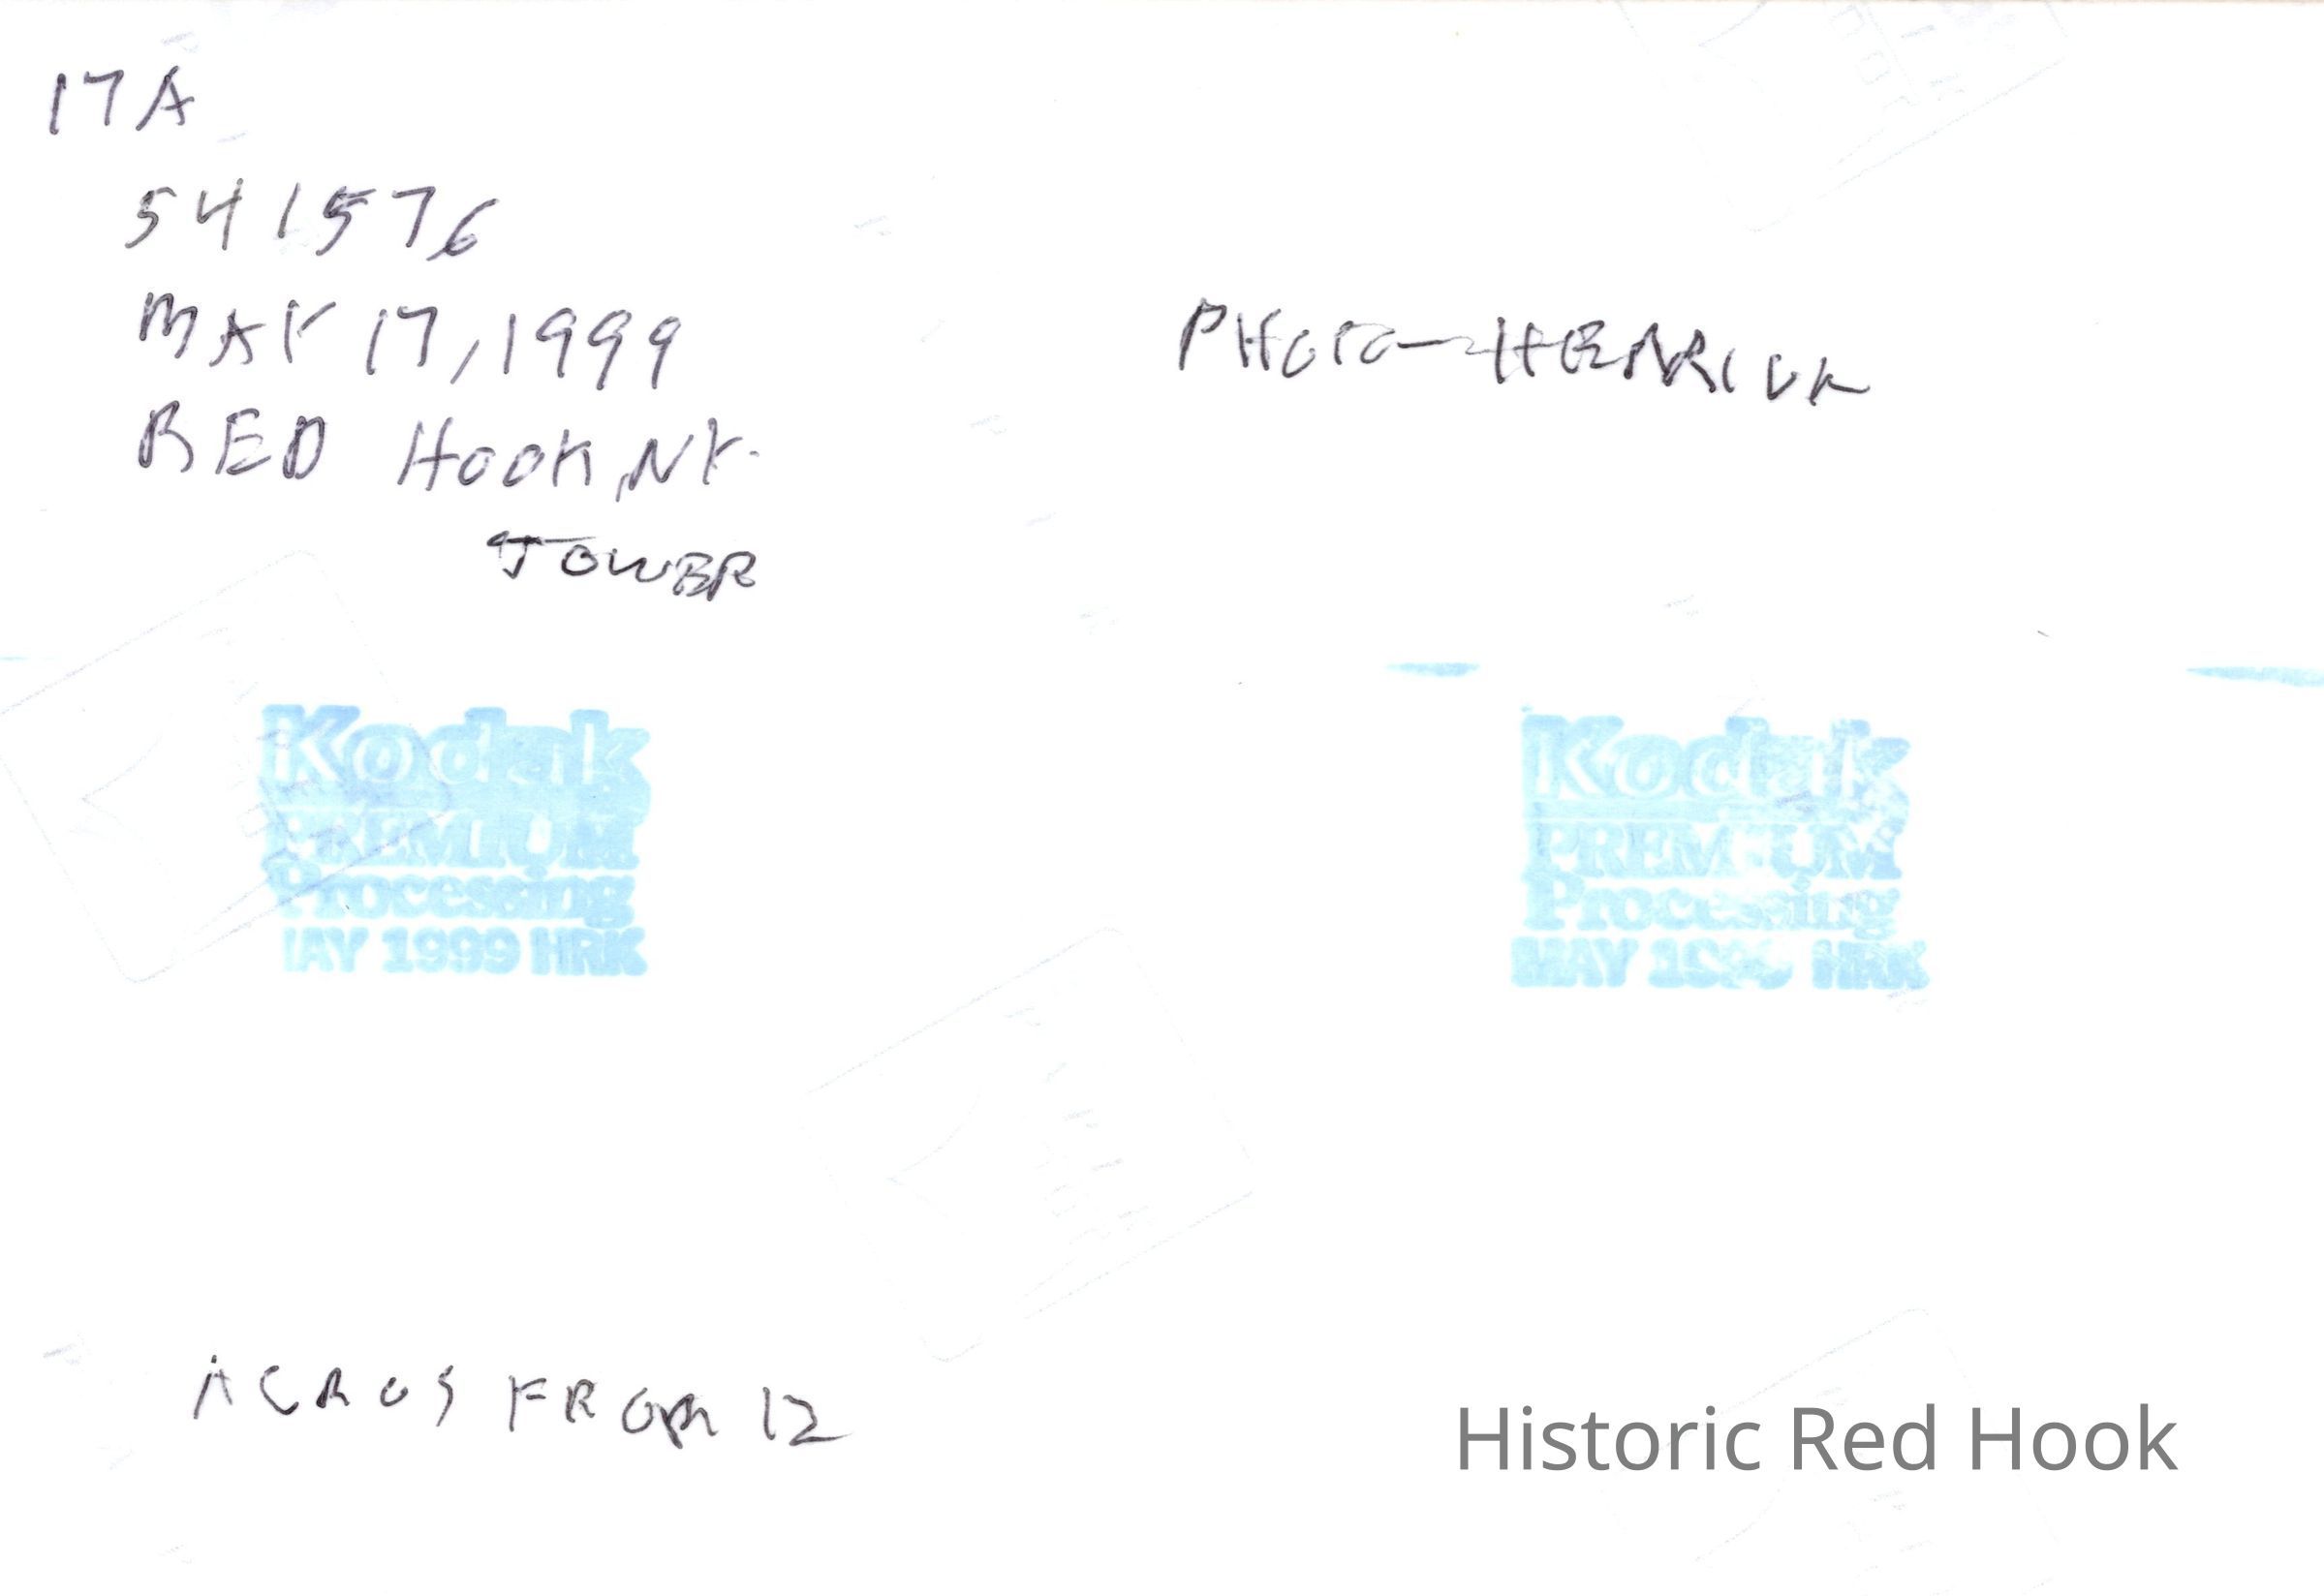 17A
541576
MAY 17, 1999
PHOTO - HENRICK
RED HOOK, NY.
TOWER
Kodak
PREMIUM
Processing
MAY 1999 HRK
Kodak
PREMIUM
Processing
MAY 1999 HRK
ACROS FROM 12
Historic Red Hook